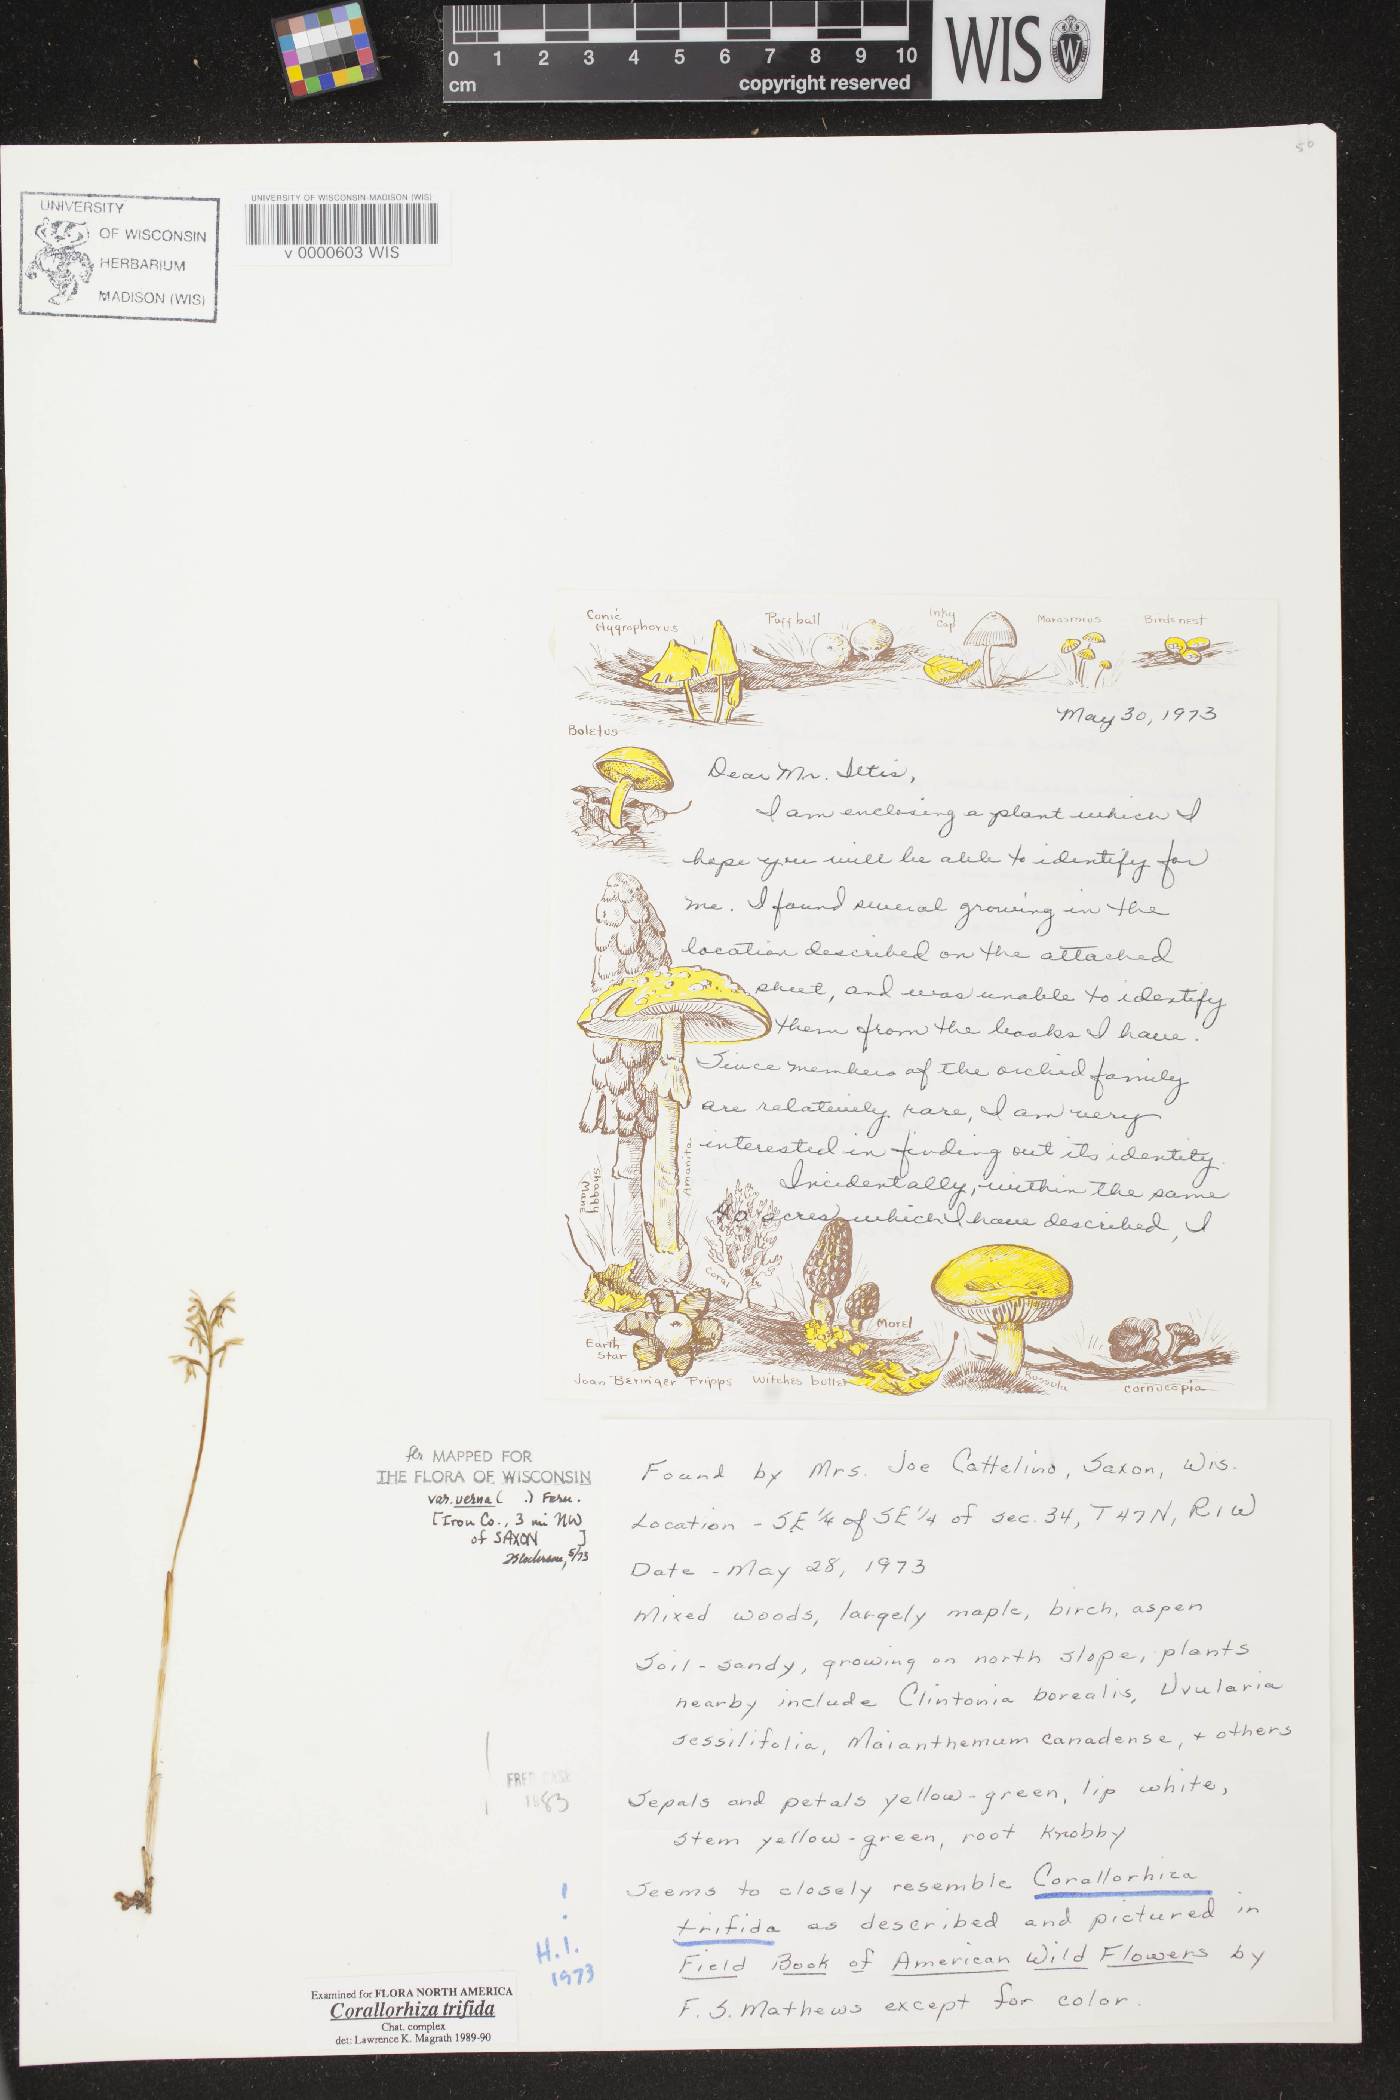 0 1 2 3 4 5 6 7 8 9 10
cm
copyright reserved
WIS
W
56
UNIVERSITY
OF WISCONSIN
HERBARIUM
MADISON (WIS)
UNIVERSITY OF WISCONSIN-MADISON (WIS)
v 0000603 WIS
Conic
Hygrophorus
Puffball
Inky
Cap
Marasmius
Birdsnest
May 30, 1973
Boletus
Dear Mr. Iltis,
I am enclosing a plant which I
hope you will be able to identify for
me. I found several growing in the
location described on the attached
sheet, and was unable to identify
them from the books I have.
Since members of the orchid family
are relatively rare, I am very
interested in finding out its identity.
Incidentally, within the same
40 acres which I have described, I
Shaggy
Mane
Amanita
Coral
Morel
Earth
Star
Joan Beringer Pripps
Witches butter
Russula
cornucopia
flr MAPPED FOR
THE FLORA OF WISCONSIN
var. verna ( .) Fern.
[Iron Co., 3 mi NW
of SAXON ]
5/73
Found by Mrs. Joe Cattelino, Saxon, Wis.
Location - SE 1/4 of SE 1/4 of sec. 34, T47N, R1W
Date - May 28, 1973
Mixed woods, largely maple, birch, aspen
Soil - sandy, growing on north slope, plants
nearby include Clintonia borealis, Uvularia
sessilifolia, Maianthemum canadense, + others
Sepals and petals yellow-green, lip white,
stem yellow-green, root knobby
Seems to closely resemble Corallorhiza
trifida as described and pictured in
Field Book of American Wild Flowers by
F. S. Mathews except for color.
FRED CASE
1983
!
H.I.
1973
Examined for FLORA NORTH AMERICA
Corallorhiza trifida
Chat. complex
det: Lawrence K. Magrath 1989-90